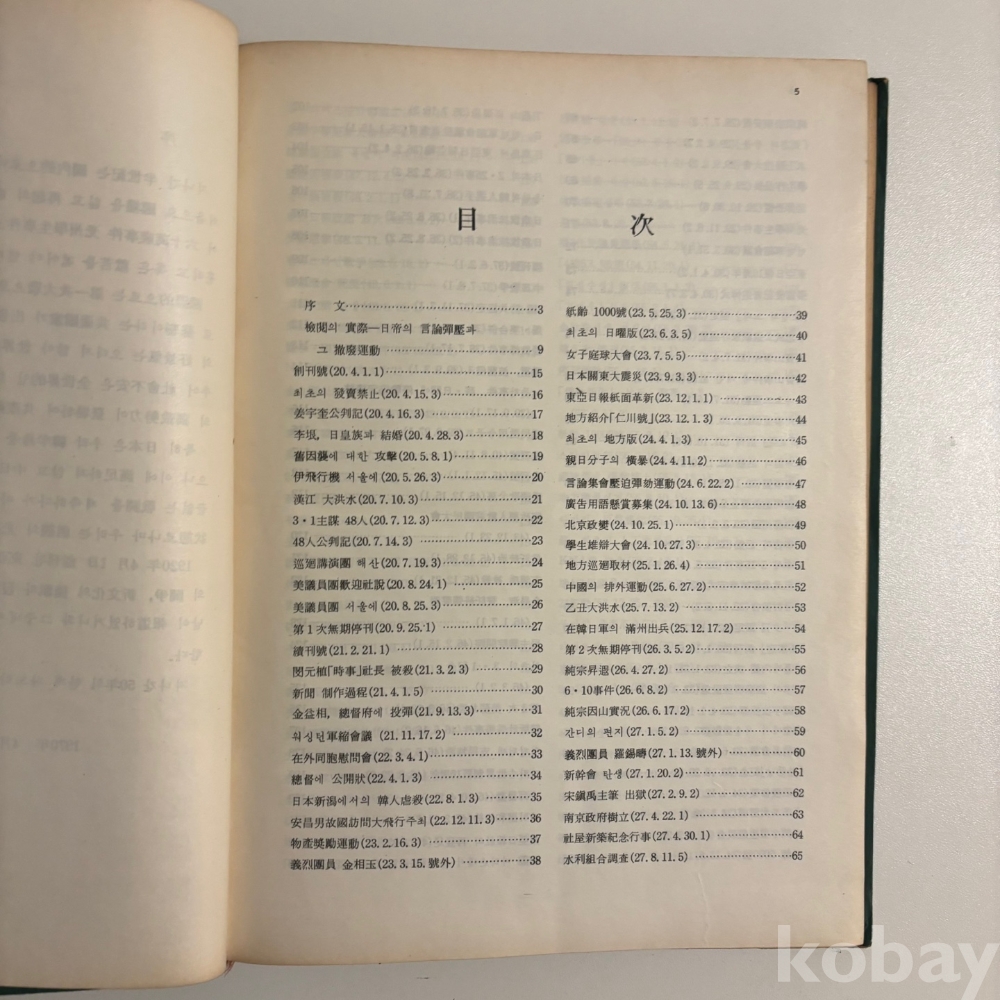 5
目 次
序 文 3
檢閱의 實際—日帝의 言論彈壓과
그 撤廢運動 9
創刊號(20.4.1.1) 15
최초의 發賣禁止(20.4.15.3) 16
姜宇奎公判記(20.4.16.3) 17
李垠, 日皇族과 結婚(20.4.28.3) 18
舊因襲에 대한 攻擊(20.5.8.1) 19
伊飛行機 서울에(20.5.26.3) 20
漢江 大洪水(20.7.10.3) 21
3·1主謀 48人(20.7.12.3) 22
48人公判記(20.7.14.3) 23
巡廻講演團 해산(20.7.19.3) 24
美議員團歡迎社說(20.8.24.1) 25
美議員団 서울에(20.8.25.3) 26
第1次無期停刊(20.9.25.1) 27
續刊號(21.2.21.1) 28
閔元植「時事」社長 被殺(21.3.2.3) 29
新聞 制作過程(21.4.1.5) 30
金益相, 總督府에 投彈(21.9.13.3) 31
워싱턴軍縮會議 (21.11.17.2) 32
在外同胞慰問會(22.3.4.1) 33
總督에 公開狀(22.4.1.3) 34
日本新潟에서의 韓人虐殺(22.8.1.3) 35
安昌男故國訪問大飛行주최(22.12.11.3) 36
物產奬勵運動(23.2.16.3) 37
義烈團員 金相玉(23.3.15.號外) 38
紙齡 1000號(23.5.25.3) 39
최초의 日曜版(23.6.3.5) 40
女子庭球大會(23.7.5.5) 41
日本關東大震災(23.9.3.3) 42
東亞日報紙面革新(23.12.1.1) 43
地方紹介「仁川號」(23.12.1.3) 44
최초의 地方版(24.4.1.3) 45
親日分子의 橫暴(24.4.11.2) 46
言論集會壓迫彈劾運動(24.6.22.2) 47
廣告用語懸賞募集(24.10.13.6) 48
北京政變(24.10.25.1) 49
學生雄辯大會(24.10.27.3) 50
地方巡廻取材(25.1.26.4) 51
中國의 排外運動(25.6.27.2) 52
乙丑大洪水(25.7.13.2) 53
在韓日軍의 滿州出兵(25.12.17.2) 54
第2次無期停刊(26.3.5.2) 55
純宗昇遐(26.4.27.2) 56
6·10事件(26.6.8.2) 57
純宗因山實況(26.6.17.2) 58
간디의 편지(27.1.5.2) 59
義烈團員 羅錫疇(27.1.13.號外) 60
新幹會 탄생(27.1.20.2) 61
宋鎭禹主筆 出獄(27.2.9.2) 62
南京政府樹立(27.4.22.1) 63
社屋新築紀念行事(27.4.30.1) 64
水利組合調査(27.8.11.5) 65
kobay